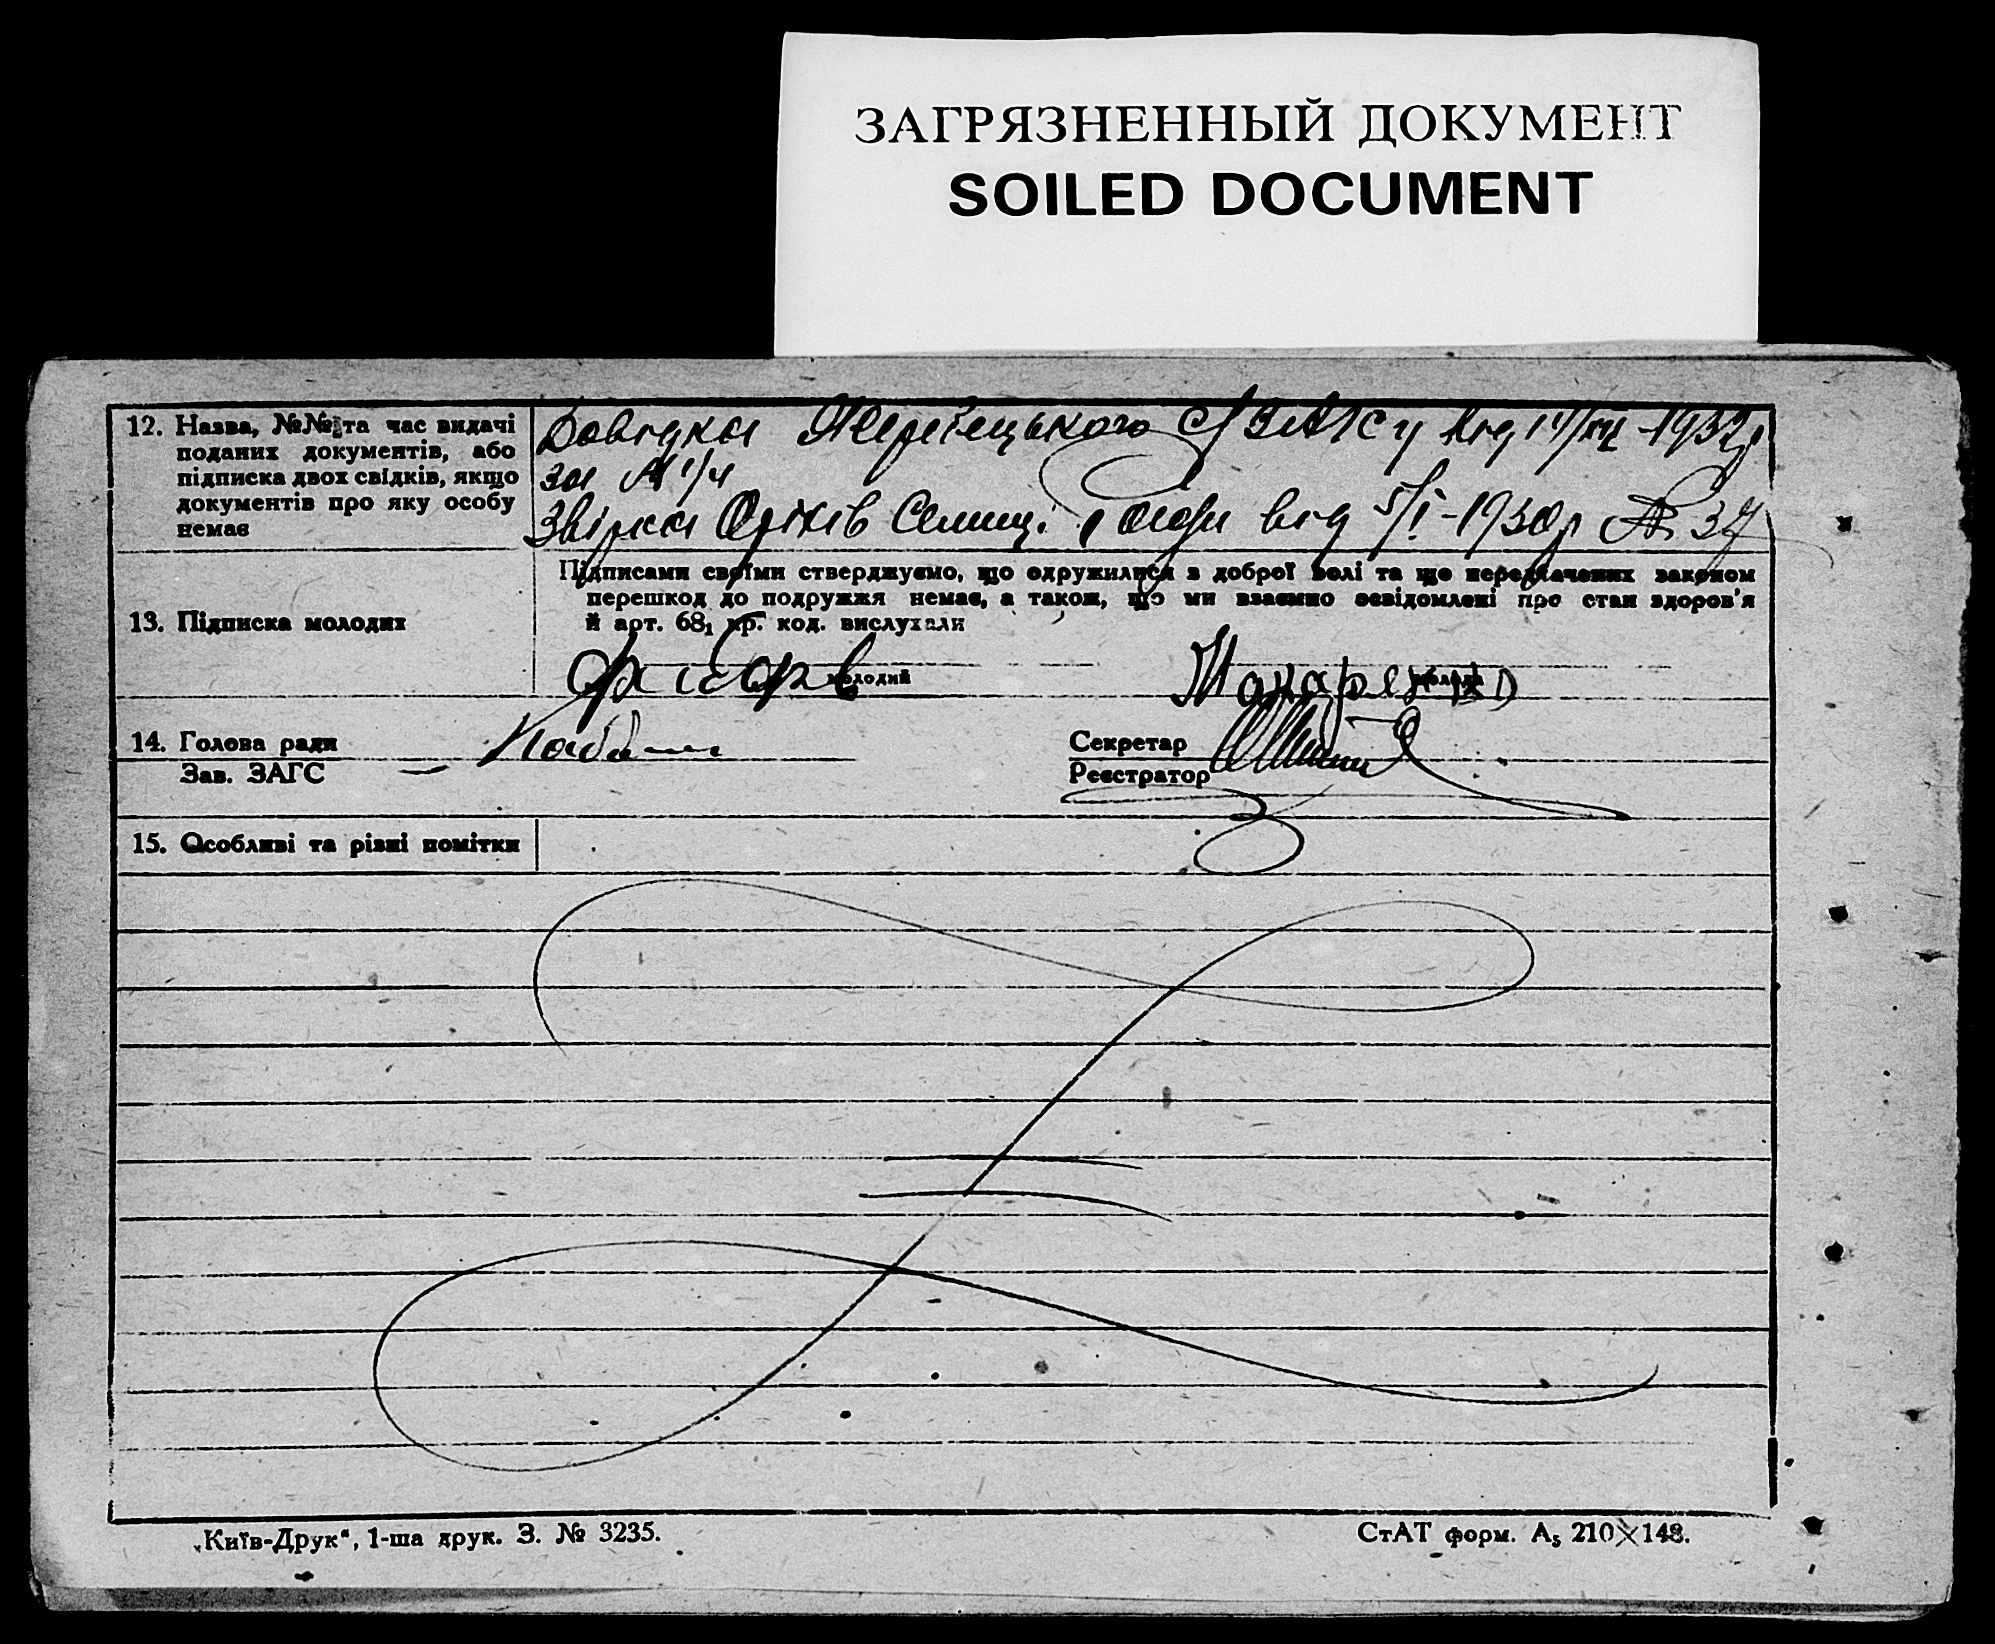 ЗАГРЯЗНЕННЫЙ ДОКУМЕНТ
SOILED DOCUMENT
12. Назва, №№ та час видачі
поданих документів, або
підписка двох свідків, якщо
документів про яку особу
немає
Довідка ЗАГСу від 14/XII-1932р
за №
Оріхів від 5/I-1930р № 37
Підписами своїми стверджуємо, що одружилися з доброї волі та що передбачених законом
перешкод до подружжя немає, а також, що ми взаємно освідомлені про стан здоров'я
й арт. 68₁ кр. код. вислухали
13. Підписка молодих
молодий
молода
14. Голова ради
Зав. ЗАГС
Секретар
Реєстратор
15. Особливі та різні помітки
„Київ-Друк“, 1-ша друк. З. № 3235.
СтАТ форм. А₅ 210×148.